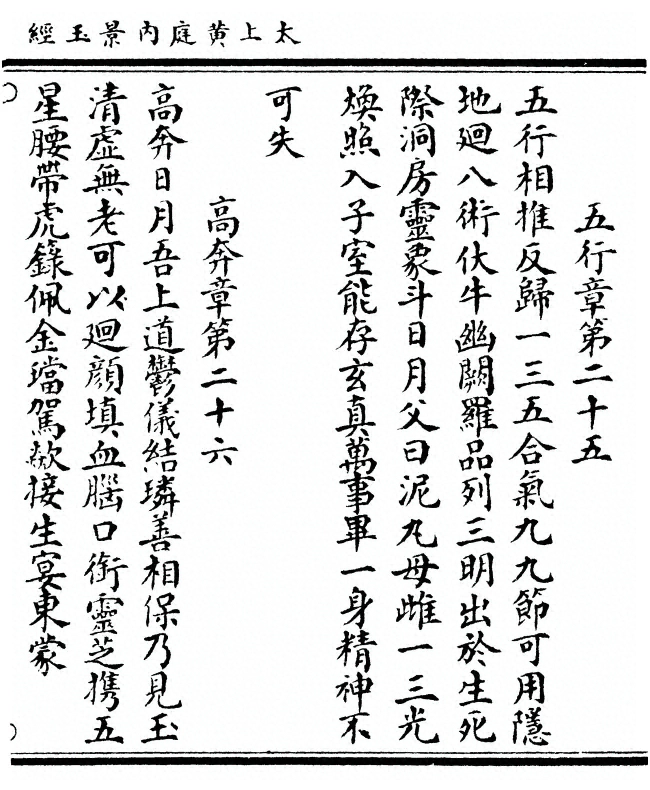 太上黄庭內景玉經
五行章第二十五
五行相推反歸一三五合氣九九節可用隱
地廻八術伏牛幽闕羅品列三明出於生死
際洞房靈象斗日月父曰泥丸母雌一三光
煥照入子室能存玄真萬事畢一身精神不
可失
高奔章第二十六
高奔日月吾上道鬱儀結璘善相保乃見玉
清虛無老可以廻顏填血腦口銜靈芝携五
星腰帶虎籙佩金璫駕欻接生宴東蒙